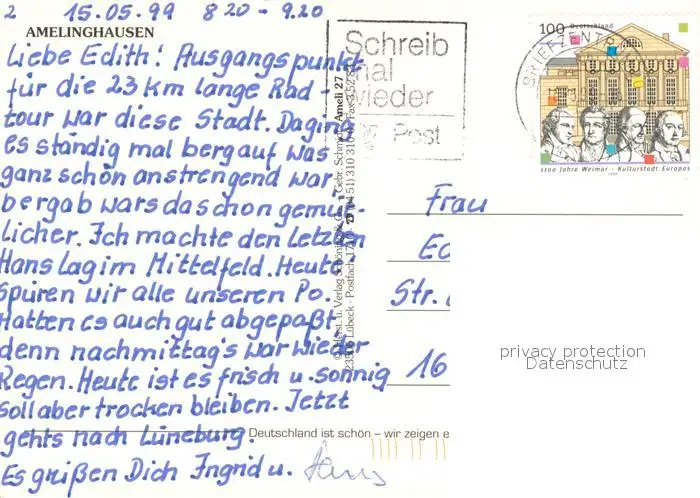 2 15.05.99 8 20 - 9.20
AMELINGHAUSEN
Liebe Edith! Ausgangspunkt
für die 23 km lange Rad-
tour war diese Stadt. Da ging
es ständig mal bergauf was
ganz schön anstrengend war
bergab wars da schon gemüt-
licher. Ich machte den Letzten
Hans lag im Mittelfeld. Heute
spüren wir alle unseren Po.
Hatten es auch gut abgepaßt
denn nachmittag's war wieder
Regen. Heute ist es frisch u. sonnig
soll aber trocken bleiben. Jetzt
gehts nach Lüneburg.
Es grüßen Dich Ingrid u. Hans
Deutschland ist schön – wir zeigen e
Ameli 27
Schreib
mal
wieder
Post
BRIEFZENTR
100 Deutschland
1100 Jahre Weimar · Kulturstadt Europas
1999
Frau
Ed
Str.
16
privacy protection
Datenschutz